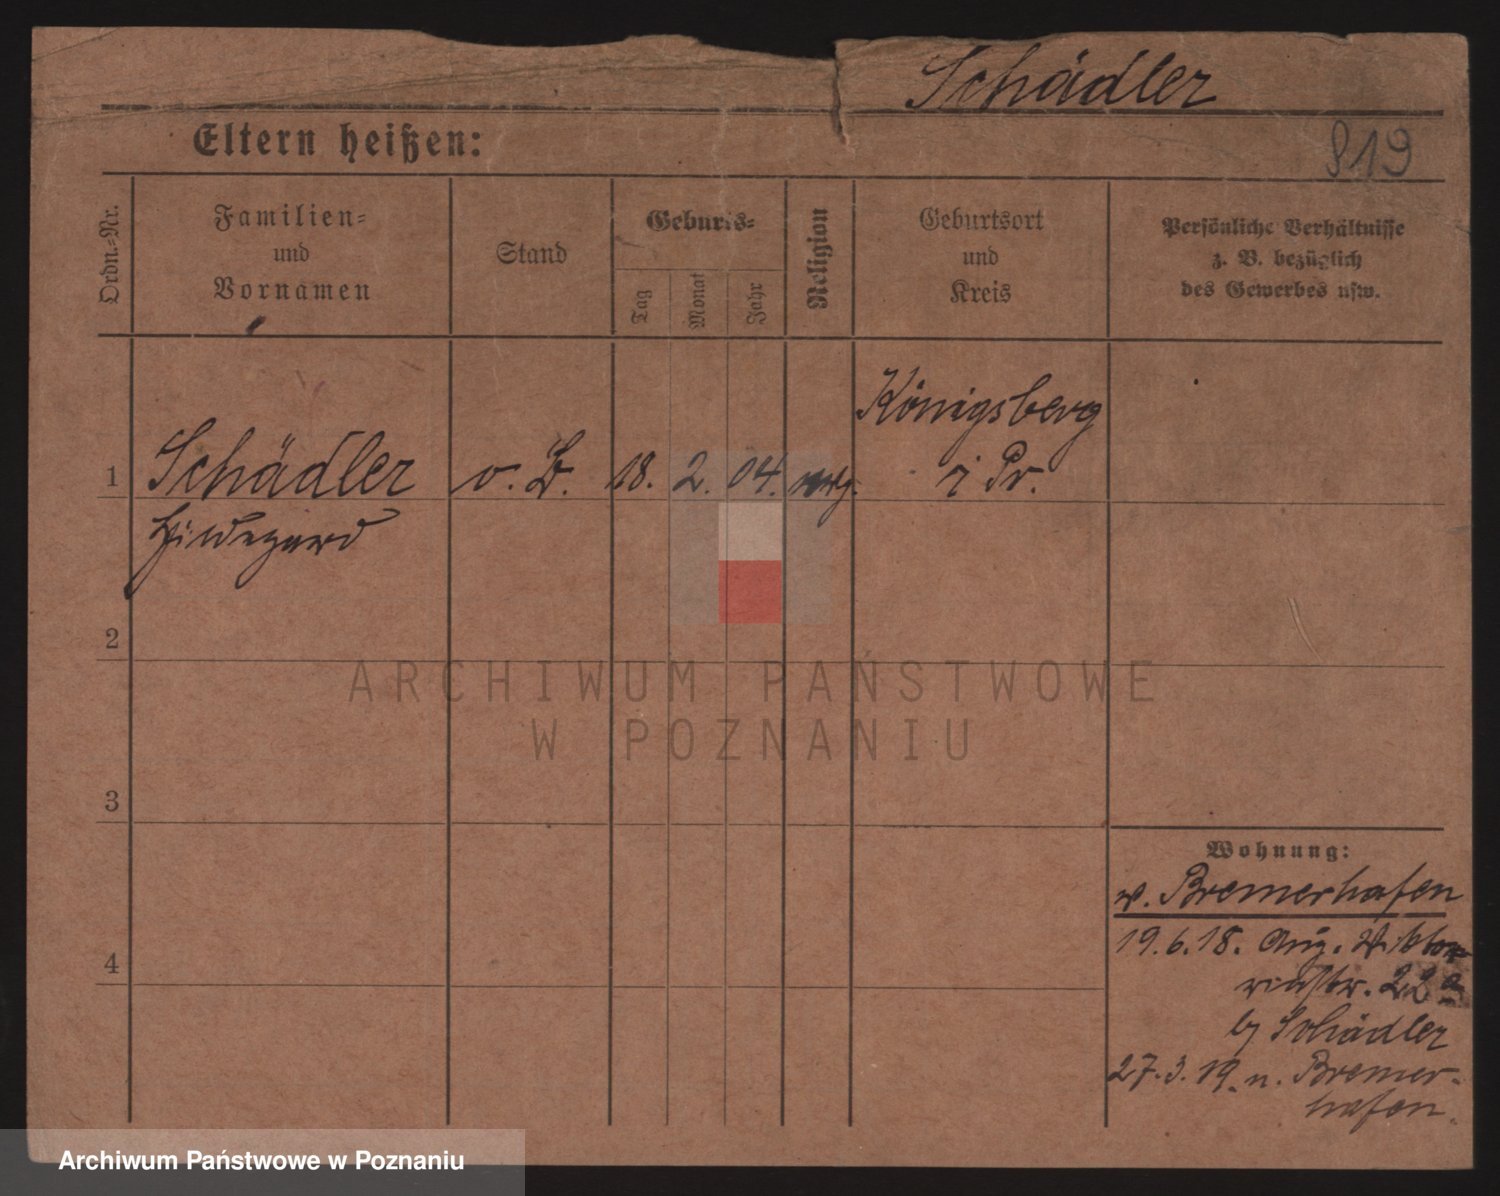 Schädler
Eltern heißen:
819
Ordn=Nr.
Familien=
und
Vornamen
Stand
Geburts=
Tag
Monat
Jahr
Religion
Geburtsort
und
Kreis
Persönliche Verhältnisse
z. B. bezüglich
des Gewerbes usw.
Königsberg
1 Schädler o. B. 18. 2. 04. evg. i Pr.
Hildegard
2
ARCHIWUM PAŃSTWOWE
W POZNANIU
3
Wohnung:
v. Bremerhafen
19.6.18. Aug. Viktor
riastr. 22 a
b/ Schädler
27.3.19. n. Bremer-
hafen.
4
Archiwum Państwowe w Poznaniu